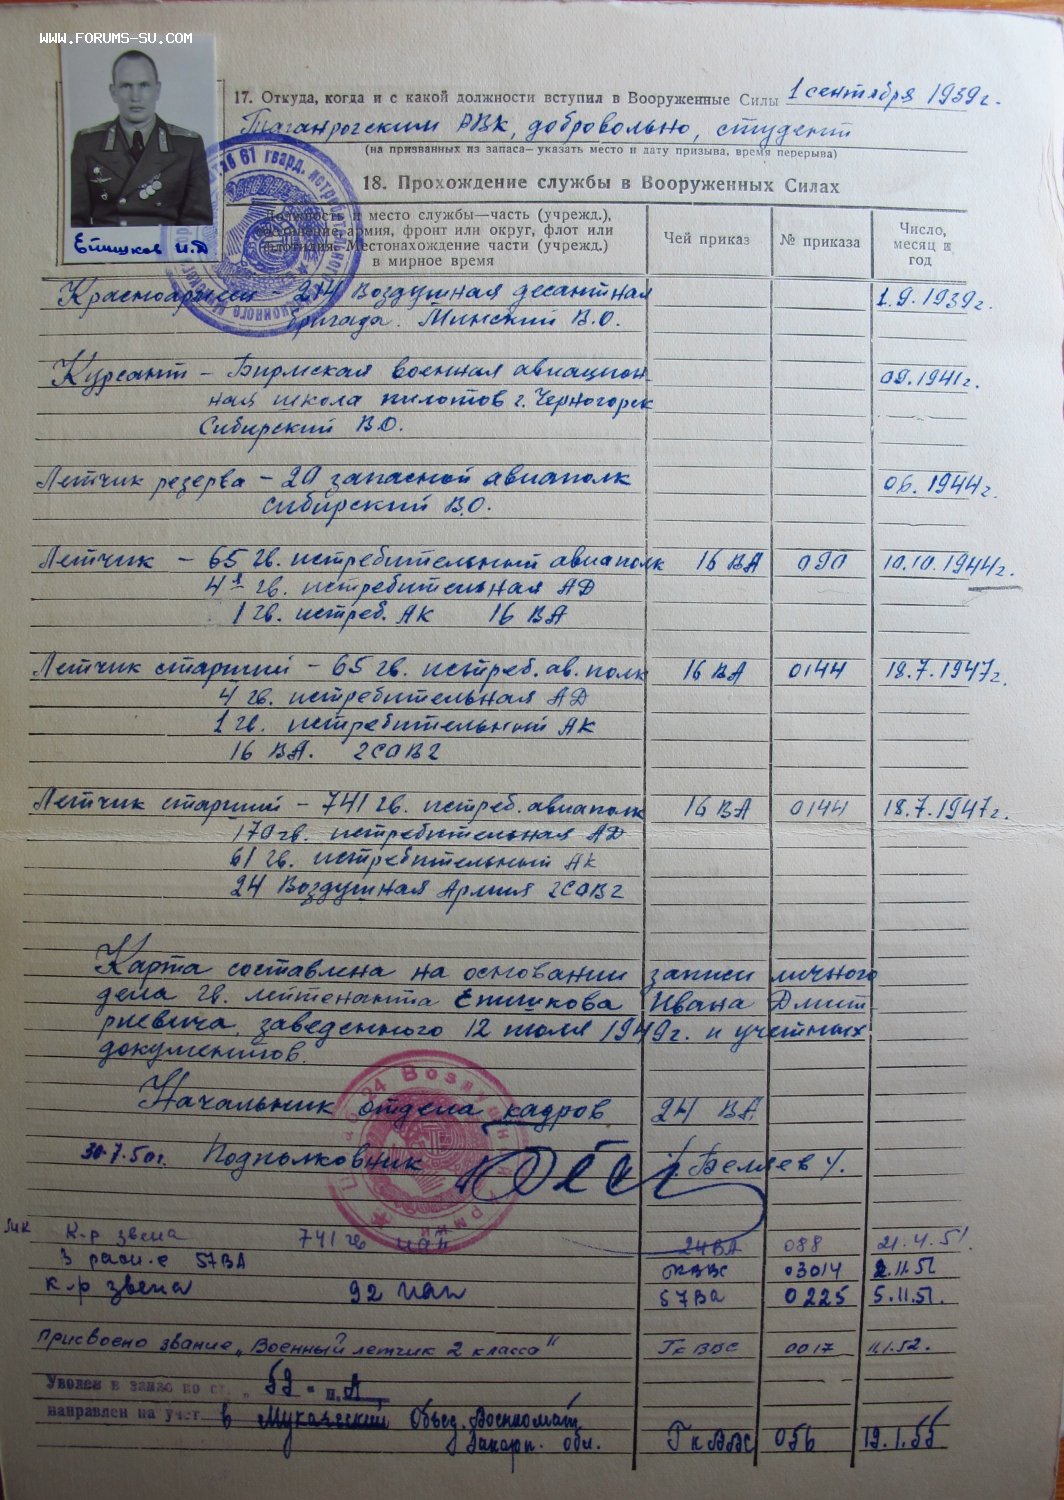 WWW.FORUMS-SU.COM
17. Откуда, когда и с какой должности вступил в Вооруженные Силы 1 сентября 1939г.
Таганрогским РВК, добровольно, студент
(на призванных из запаса— указать место и дату призыва, время перерыва)
18. Прохождение службы в Вооруженных Силах
Епишков И.Д
Должность и место службы—часть (учрежд.),
армия, фронт или округ, флот или
флотилия. Местонахождение части (учрежд.)
в мирное время
Чей приказ
№ приказа
Число,
месяц и
год
61 гвард. истребительного авиационного
Красноармеец - 214 Воздушная десантная 1.9.1939г.
бригада. Минский В.О.
Курсант - Бирмская военная авиацион 09.1941г.
ная школа пилотов г. Черногорск
Сибирский В.О.
Летчик резерва - 20 запасной авиаполк 06.1944г.
Сибирский В.О.
Летчик - 65 гв. истребительный авиаполк 16 ВА 090 10.10.1944г.
4я гв. истребительная АД
1 гв. истреб. АК 16 ВА
Летчик старший - 65 гв. истреб. ав. полк 16 ВА 0144 18.7.1947г.
4 гв. истребительная АД
1 гв. истребительный АК
16 ВА. ГСОВГ
Летчик старший - 741 гв. истреб. авиаполк 16 ВА 0144 18.7.1947г.
170 гв. истребительная АД
61 гв. истребительный АК
24 Воздушная Армия ГСОВГ
Карта составлена на основании записи личного
дела гв. лейтенанта Епишкова Ивана Дмит
риевича, заведенного 12 июля 1949г. и учетных
документов.
Начальник отдела кадров 24 ВА
30.7.50г. Подполковник Беляев
24 Воздушной Армии
К-р звена 741 гв иап 24 ВА 088 21.4.51.
В расп-е 57ВА 03014 2.11.51
к-р звена 92 иап 57Ва 0225 5.11.51.
присвоено звание „Военный летчик 2 класса" Гк ВВС 0017 11.1.52.
Уволен в запас по ст. „59" п. А
направлен на учет в Мукачевский Объед. Военкомат
Закарп. обл. Гк ВВС 056 19.1.55